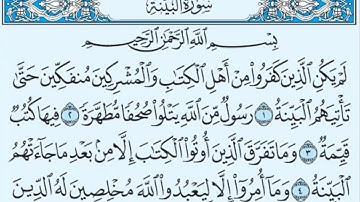 سُورَةُ البَيِّنَةِ
بِسْمِ اللَّهِ الرَّحْمَٰنِ الرَّحِيمِ
لَمْ يَكُنِ الَّذِينَ كَفَرُوا مِنْ أَهْلِ الْكِتَابِ وَالْمُشْرِكِينَ مُنفَكِّينَ حَتَّىٰ
تَأْتِيَهُمُ الْبَيِّنَةُ ١ رَسُولٌ مِّنَ اللَّهِ يَتْلُو صُحُفًا مُّطَهَّرَةً ٢ فِيهَا كُتُبٌ
قَيِّمَةٌ ٣ وَمَا تَفَرَّقَ الَّذِينَ أُوتُوا الْكِتَابَ إِلَّا مِن بَعْدِ مَا جَاءَتْهُمُ
الْبَيِّنَةُ ٤ وَمَا أُمِرُوا إِلَّا لِيَعْبُدُوا اللَّهَ مُخْلِصِينَ لَهُ الدِّينَ